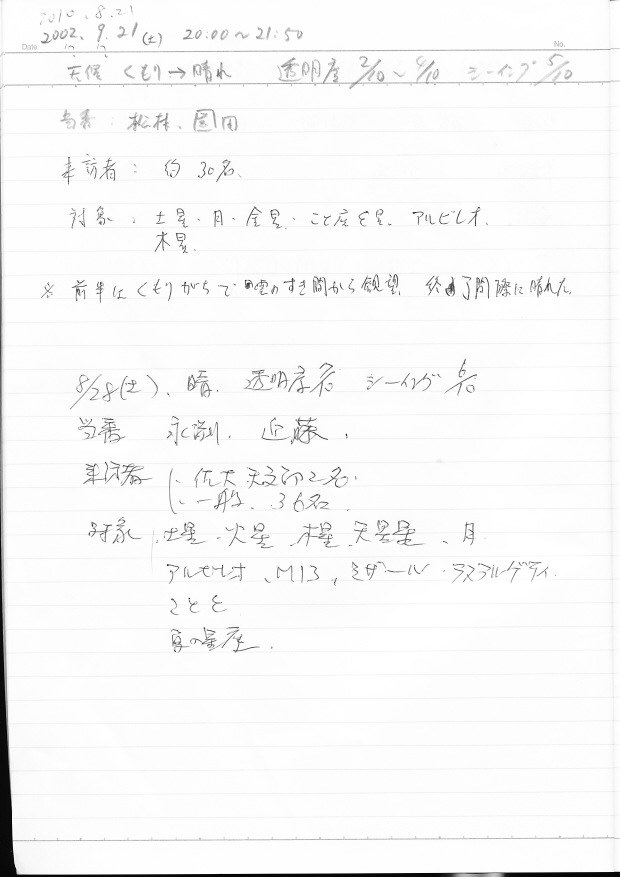 2010.8.21
2002.9.21(土) 20:00～21:50
Date No.
天候 くもり→晴れ 透明度 2/10～4/10 シーイング 5/10
当番：松林、園田
来訪者：約30名、
対象、土星・月・金星・こと座ε星、アルビレオ、
木星、
※ 前半はくもりがちで雲のすき間から観望、終了間際に晴れた。
8/28(土)、晴、透明度 シーイング 6/10
当番 永渕、近藤、
来訪者 佐大天文部2名、
一般、36名
対象 土星・火星、木星、天王星、月
アルビレオ、M13、ミザール・ラスアルゲティ、
ことε
夏の星座、